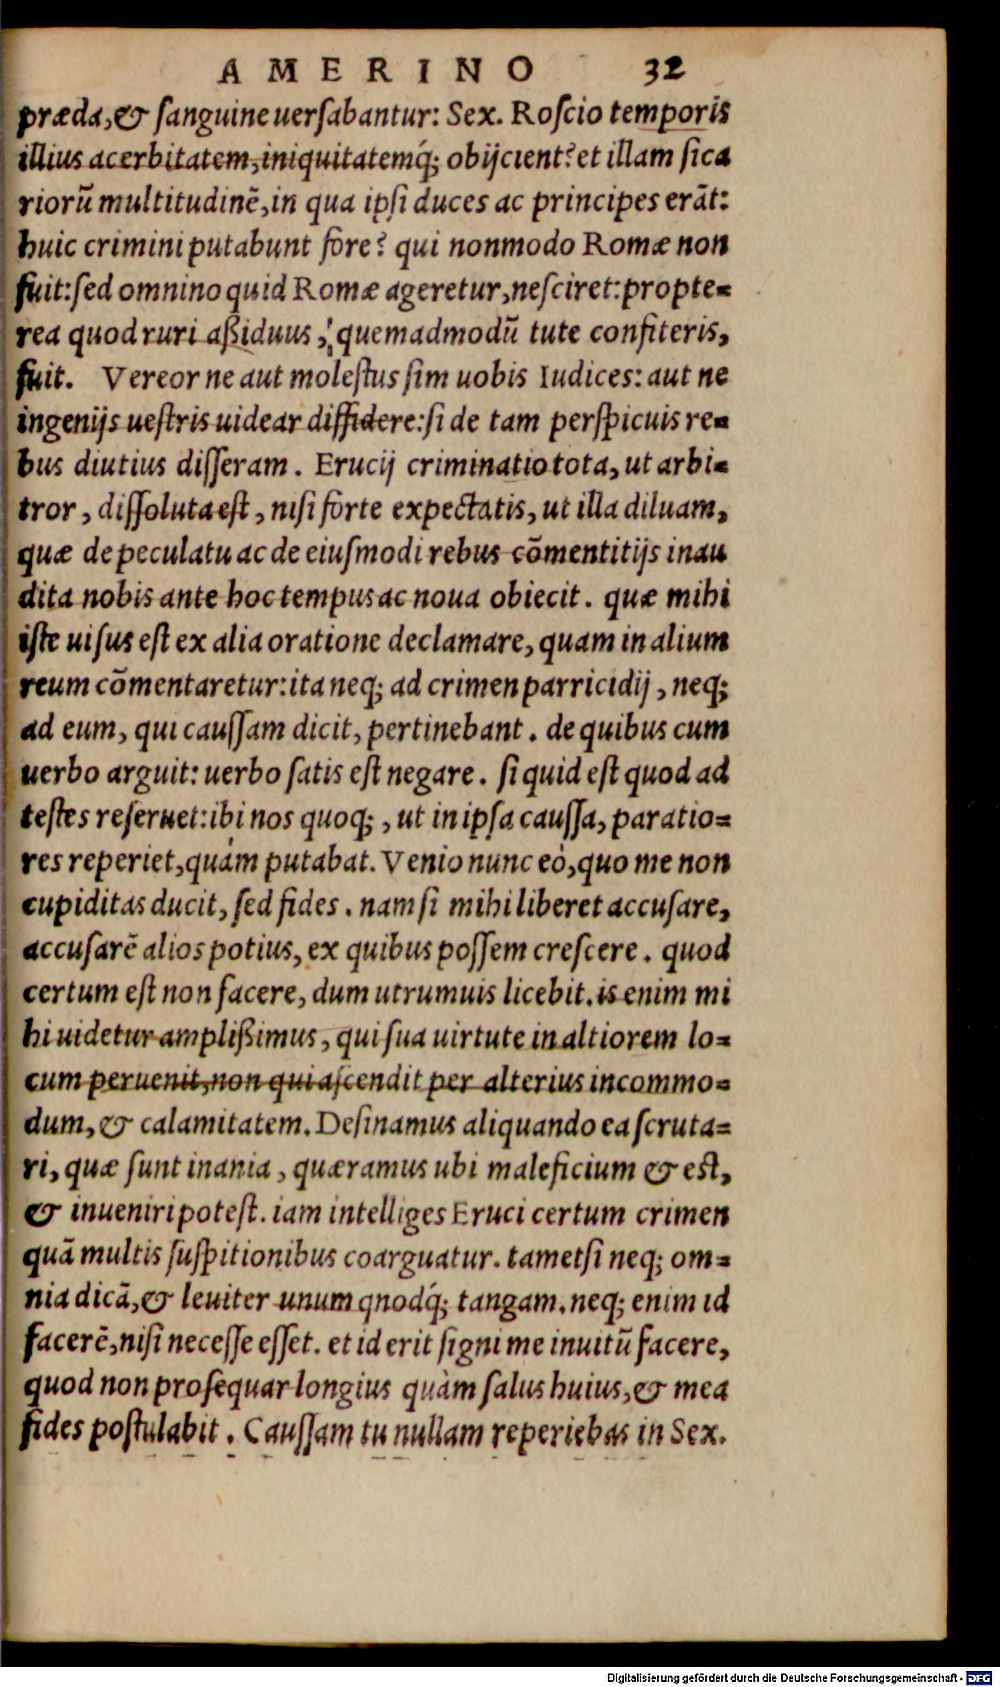 AMERINO 32
præda,& ſanguine uerſabantur: Sex. Roſcio temporis
illius acerbitatem,iniquitatemq́; obijcient? et illam ſica
riorũ multitudinẽ,in qua ipſi duces ac principes erãt:
huic crimini putabunt fore? qui nonmodo Romæ non
fuit:ſed omnino quid Romæ ageretur,neſciret:propte=
rea quod ruri aßiduus , quemadmodũ tute confiteris,
fuit. Vereor ne aut moleſtus ſim uobis Iudices: aut ne
ingenijs ueſtris uidear diffidere:ſi de tam perſpicuis re=
bus diutius diſſeram. Erucij criminatio tota, ut arbi=
tror , diſſoluta eſt , niſi forte expectatis, ut illa diluam,
quæ de peculatu ac de eiuſmodi rebus cõmentitijs inau
dita nobis ante hoc tempus ac noua obiecit. quæ mihi
iſte uiſus eſt ex alia oratione declamare, quam in alium
reum cõmentaretur:ita neq; ad crimen parricidij , neq;
ad eum, qui cauſſam dicit, pertinebant . de quibus cum
uerbo arguit: uerbo ſatis eſt negare . ſi quid eſt quod ad
teſtes reſeruet:ibi nos quoq; , ut in ipſa cauſſa, paratio=
res reperiet,quàm putabat. Venio nunc eò,quo me non
cupiditas ducit, ſed fides . nam ſi mihi liberet accuſare,
accuſarẽ alios potius, ex quibus poſſem creſcere . quod
certum eſt non facere, dum utrumuis licebit. is enim mi
hi uidetur amplißimus , qui ſua uirtute in altiorem lo=
cum peruenit,non qui aſcendit per alterius incommo=
dum, & calamitatem. Deſinamus aliquando ea ſcruta=
ri, quæ ſunt inania , quæramus ubi maleficium & eſt,
& inueniri poteſt. iam intelliges Eruci certum crimen
quã multis ſuſpitionibus coarguatur. tametſi neq; om=
nia dicã,& leuiter unum qnodq́; tangam. neq; enim id
facerẽ,niſi neceſſe eſſet. et id erit ſigni me inuitũ facere,
quod non proſequar longius quàm ſalus huius,& mea
fides poſtulabit . Cauſſam tu nullam reperiebas in Sex.
Digitalisierung gefördert durch die Deutsche Forschungsgemeinschaft - DFG